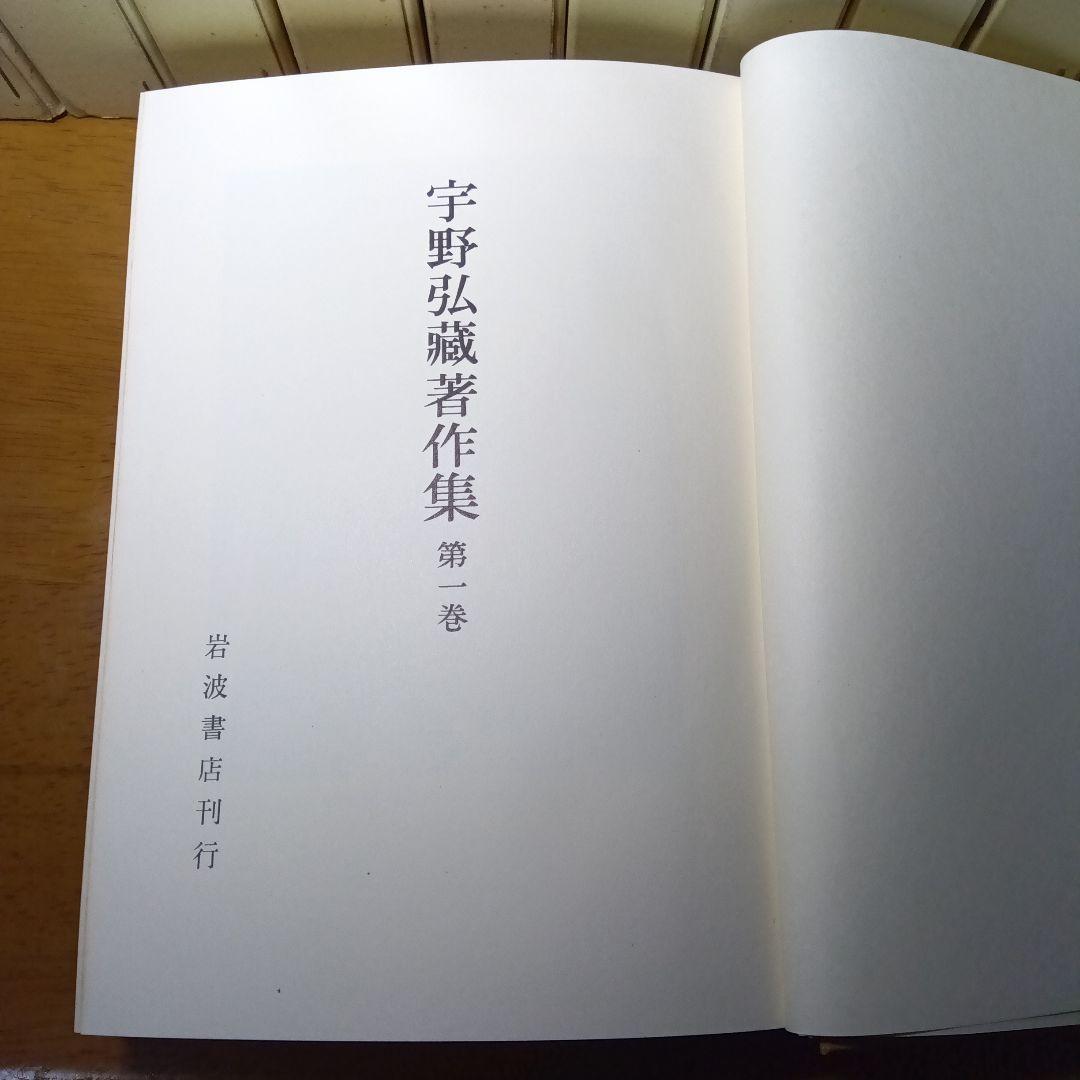 宇野弘藏著作集 第一巻
岩波書店刊行